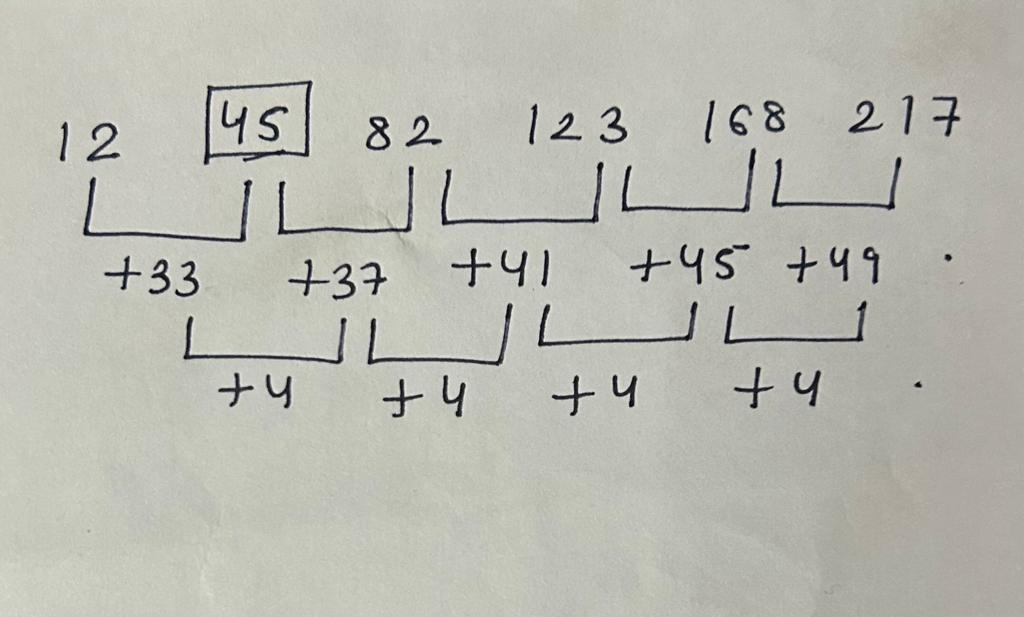 12 45 82 123 168 217
+33 +37 +41 +45 +49 .
+4 +4 +4 +4 .